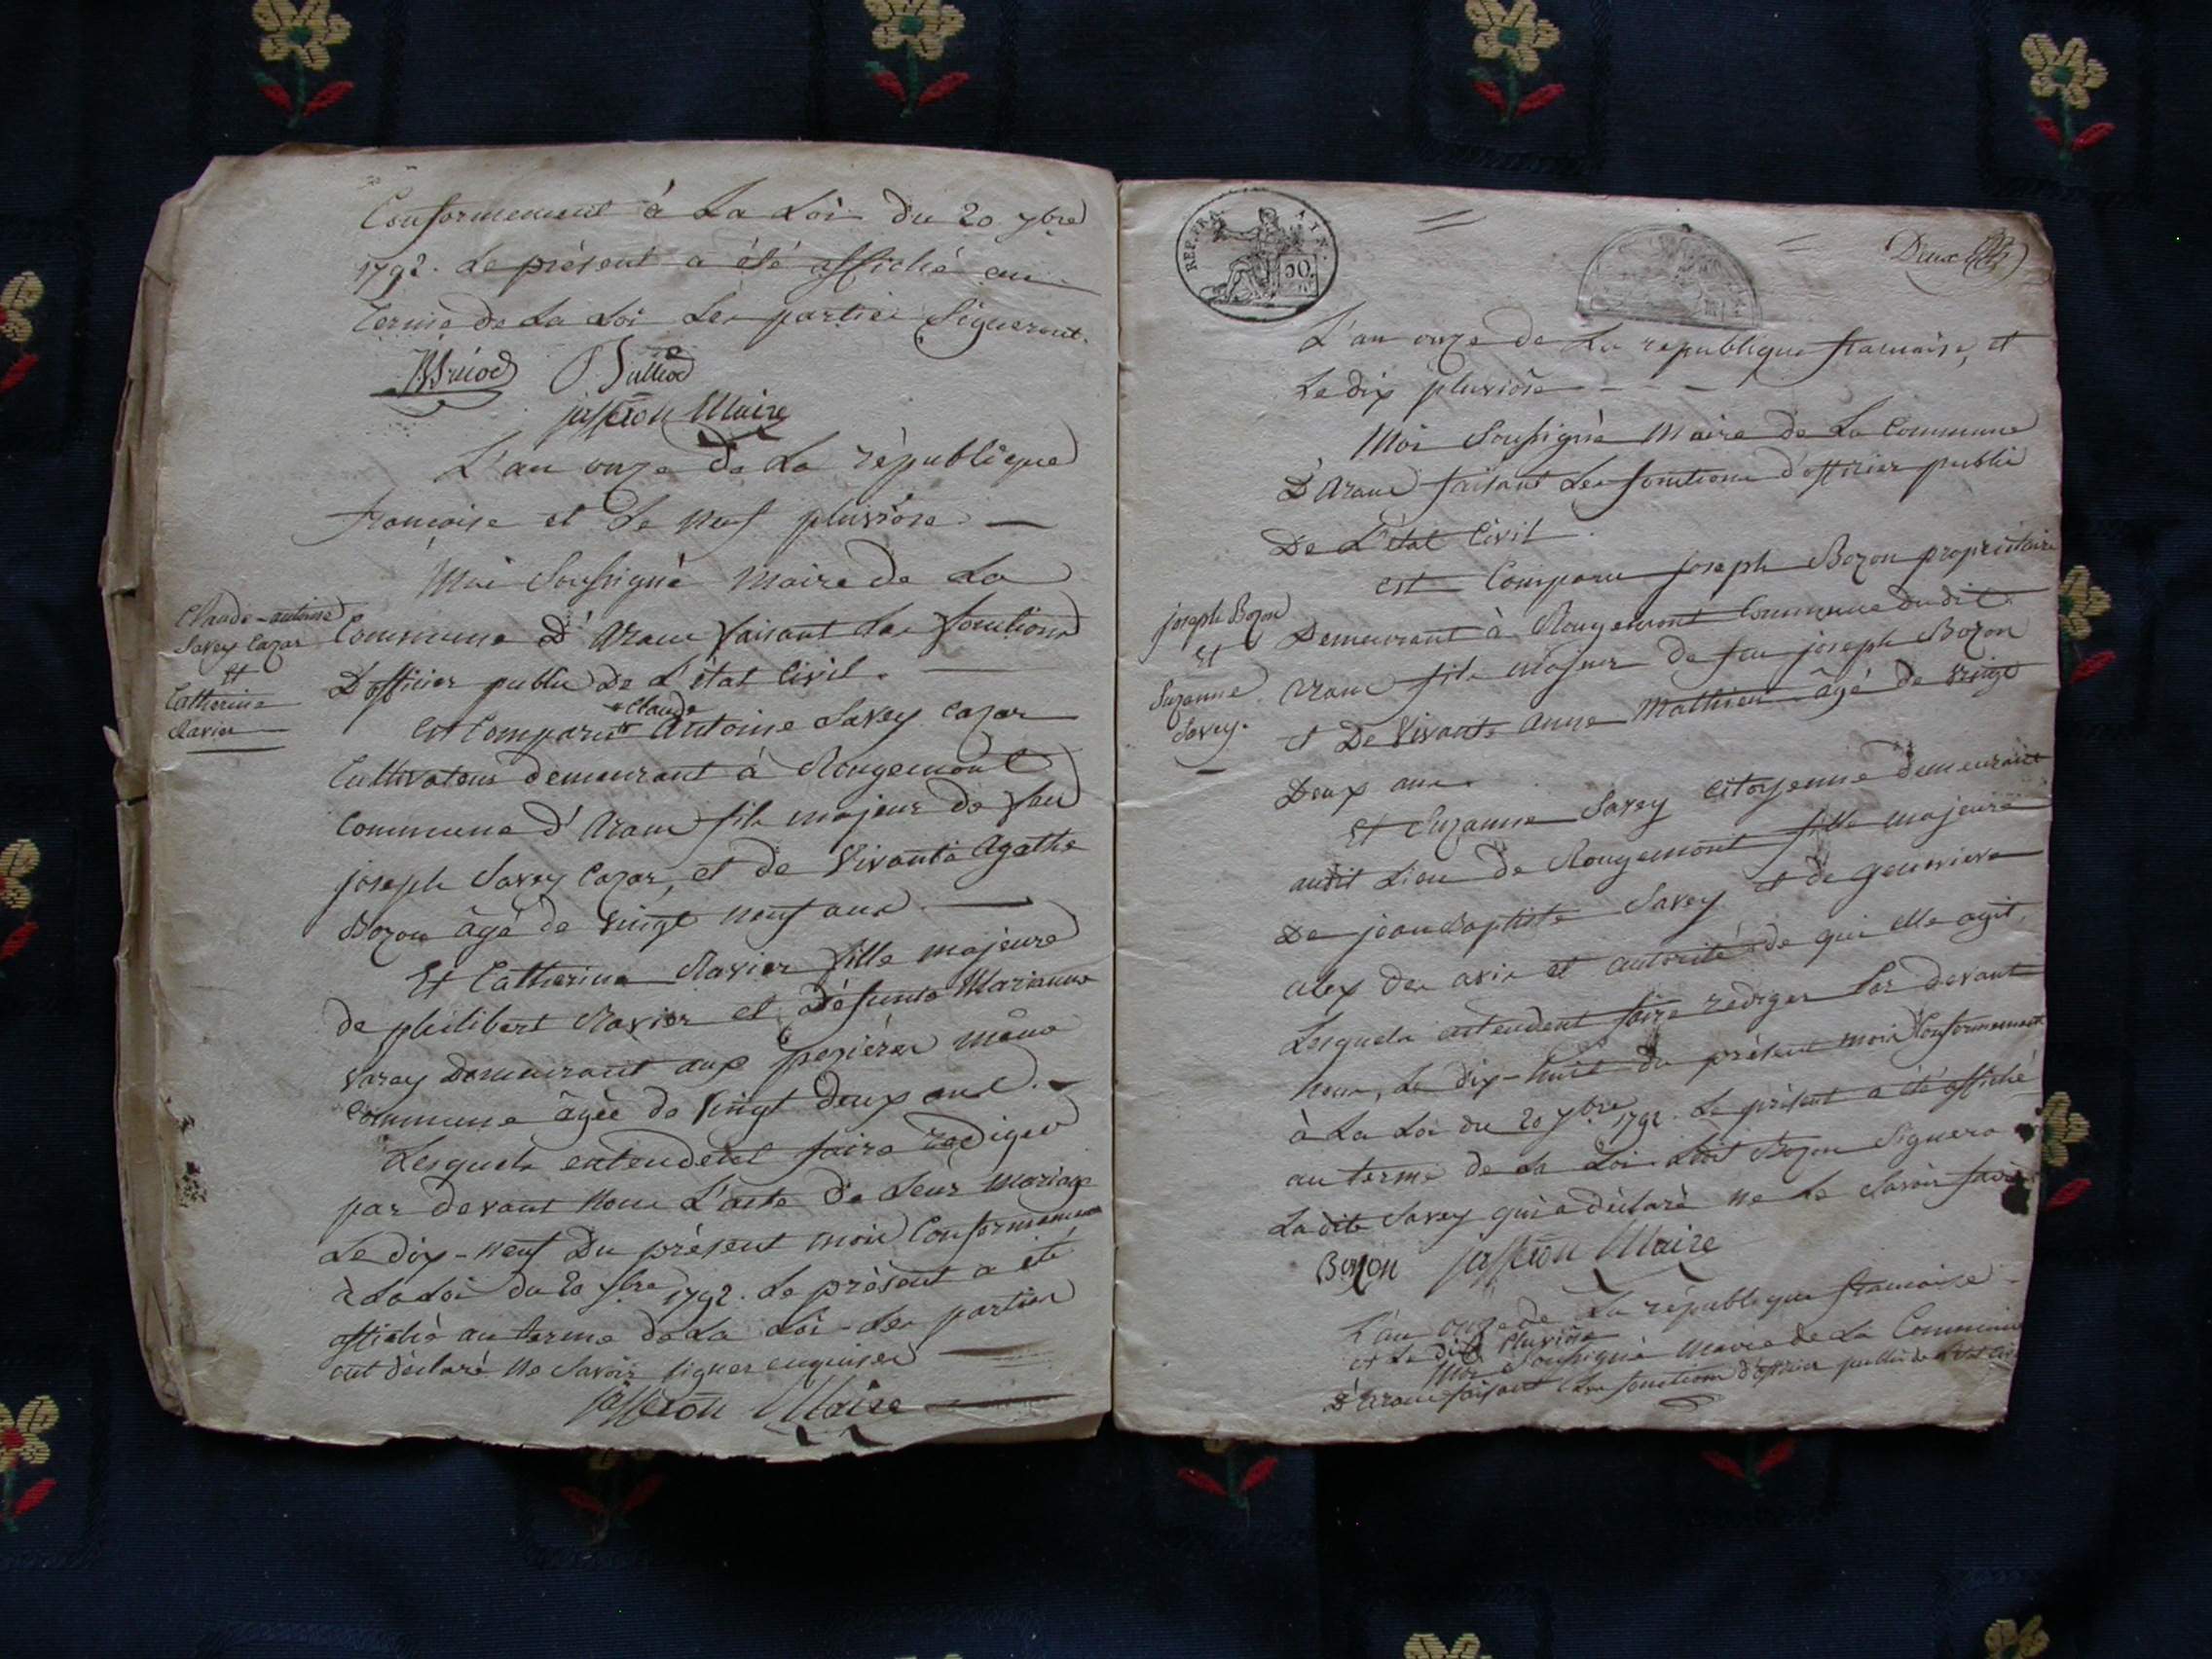 Conformement à La Loi du 20 7bre
1792. Le présent a été affiché au
terme de La Loi Les parties Signeront.
jasseron Maire
L'an onze de La république
françoise et Le neuf pluviose
Moi Soussigné Maire de La
Commune D'Aranc faisant Les fonctions
D'officier public De L'état Civil.
Claude-antoine
Savey Cazar
Et
Catherine
Ravier
Est Comparu Claude Antoine Savey Cazar
Cultivateur demeurant à Rougemont
Commune d'Aranc fils majeur de feu
joseph Savey Cazar, et de vivante Agathe
Bozon âgé de vingt neuf ans
Et Catherine Ravier fille majeure
de philibert Ravier et défunte Marianne
varay Demeurant aux pezières même
Commune âgée de vingt deux ans.
Lesquels entendent faire rediger
par devant Nous L'acte de Leur mariage
Le dix-neuf Du présent mois Conformement
à La Loi du 20 7bre 1792. Le présent a été
affiché au terme de La Loi - Les parties
ont déclaré ne Savoir signer enquises
jasseron Maire
REP. FRA
50
Deux
L'an onze de La republique francaise, et
Le dix pluviose
Moi Soussigné Maire de La Commune
D'Aranc faisant Les fonctions d'officier public
De L'état Civil.
joseph Bozon
Et
Suzanne
Savey.
est Comparu joseph Bozon propriétaire
Demeurant à Rougemont Commune Dudit
Aranc fils majeur de feu joseph Bozon
et De vivante Anne Mathieu âgé de vingt
Deux ans.
Et Suzanne Savey Citoyenne demeurant
audit Lieu de Rougemont fille majeure
De jean Baptiste Savey et de genevieve
alex des avis et autorité de qui elle agit,
Lesquels entendent faire rediger Par devant
Nous, Le dix-huit du présent mois Conformement
à La Loi du 20 7bre 1792. Le présent a été affiché
au terme de La Loi Ledit Bozon Signera
La dite Savey qui a déclaré ne Le Savoir faire
Bozon jasseron Maire
L'an onze de La république francaise
et Le dix Pluviose
Moi Soussigné Maire de La Commune
D'Aranc faisant Les fonctions d'officier public de L'état Civil